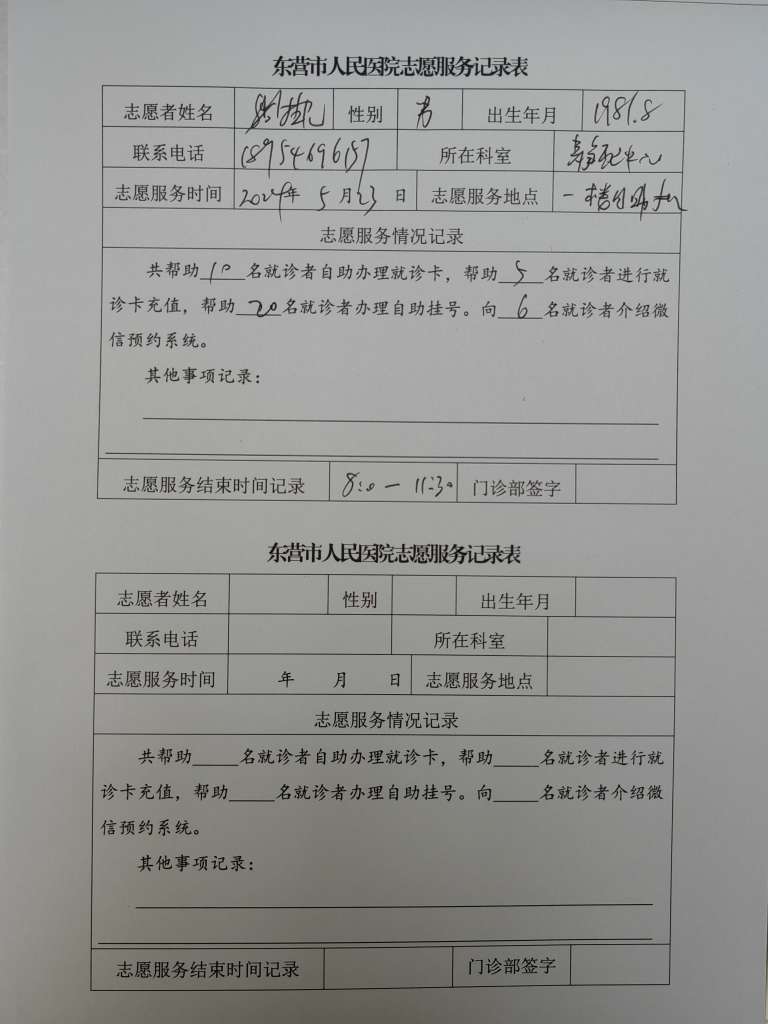 东营市人民医院志愿服务记录表
志愿者姓名 性别 男 出生年月 1981.8
联系电话 18954696157 所在科室 静配中心
志愿服务时间 2024年 5 月23 日 志愿服务地点 一楼自助机
志愿服务情况记录
共帮助10名就诊者自助办理就诊卡，帮助5名就诊者进行就
诊卡充值，帮助20名就诊者办理自助挂号。向6名就诊者介绍微
信预约系统。
其他事项记录：
志愿服务结束时间记录 8:0 — 11:30 门诊部签字
东营市人民医院志愿服务记录表
志愿者姓名 性别 出生年月
联系电话 所在科室
志愿服务时间 年 月 日 志愿服务地点
志愿服务情况记录
共帮助_____名就诊者自助办理就诊卡，帮助_____名就诊者进行就
诊卡充值，帮助_____名就诊者办理自助挂号。向_____名就诊者介绍微
信预约系统。
其他事项记录：
志愿服务结束时间记录 门诊部签字